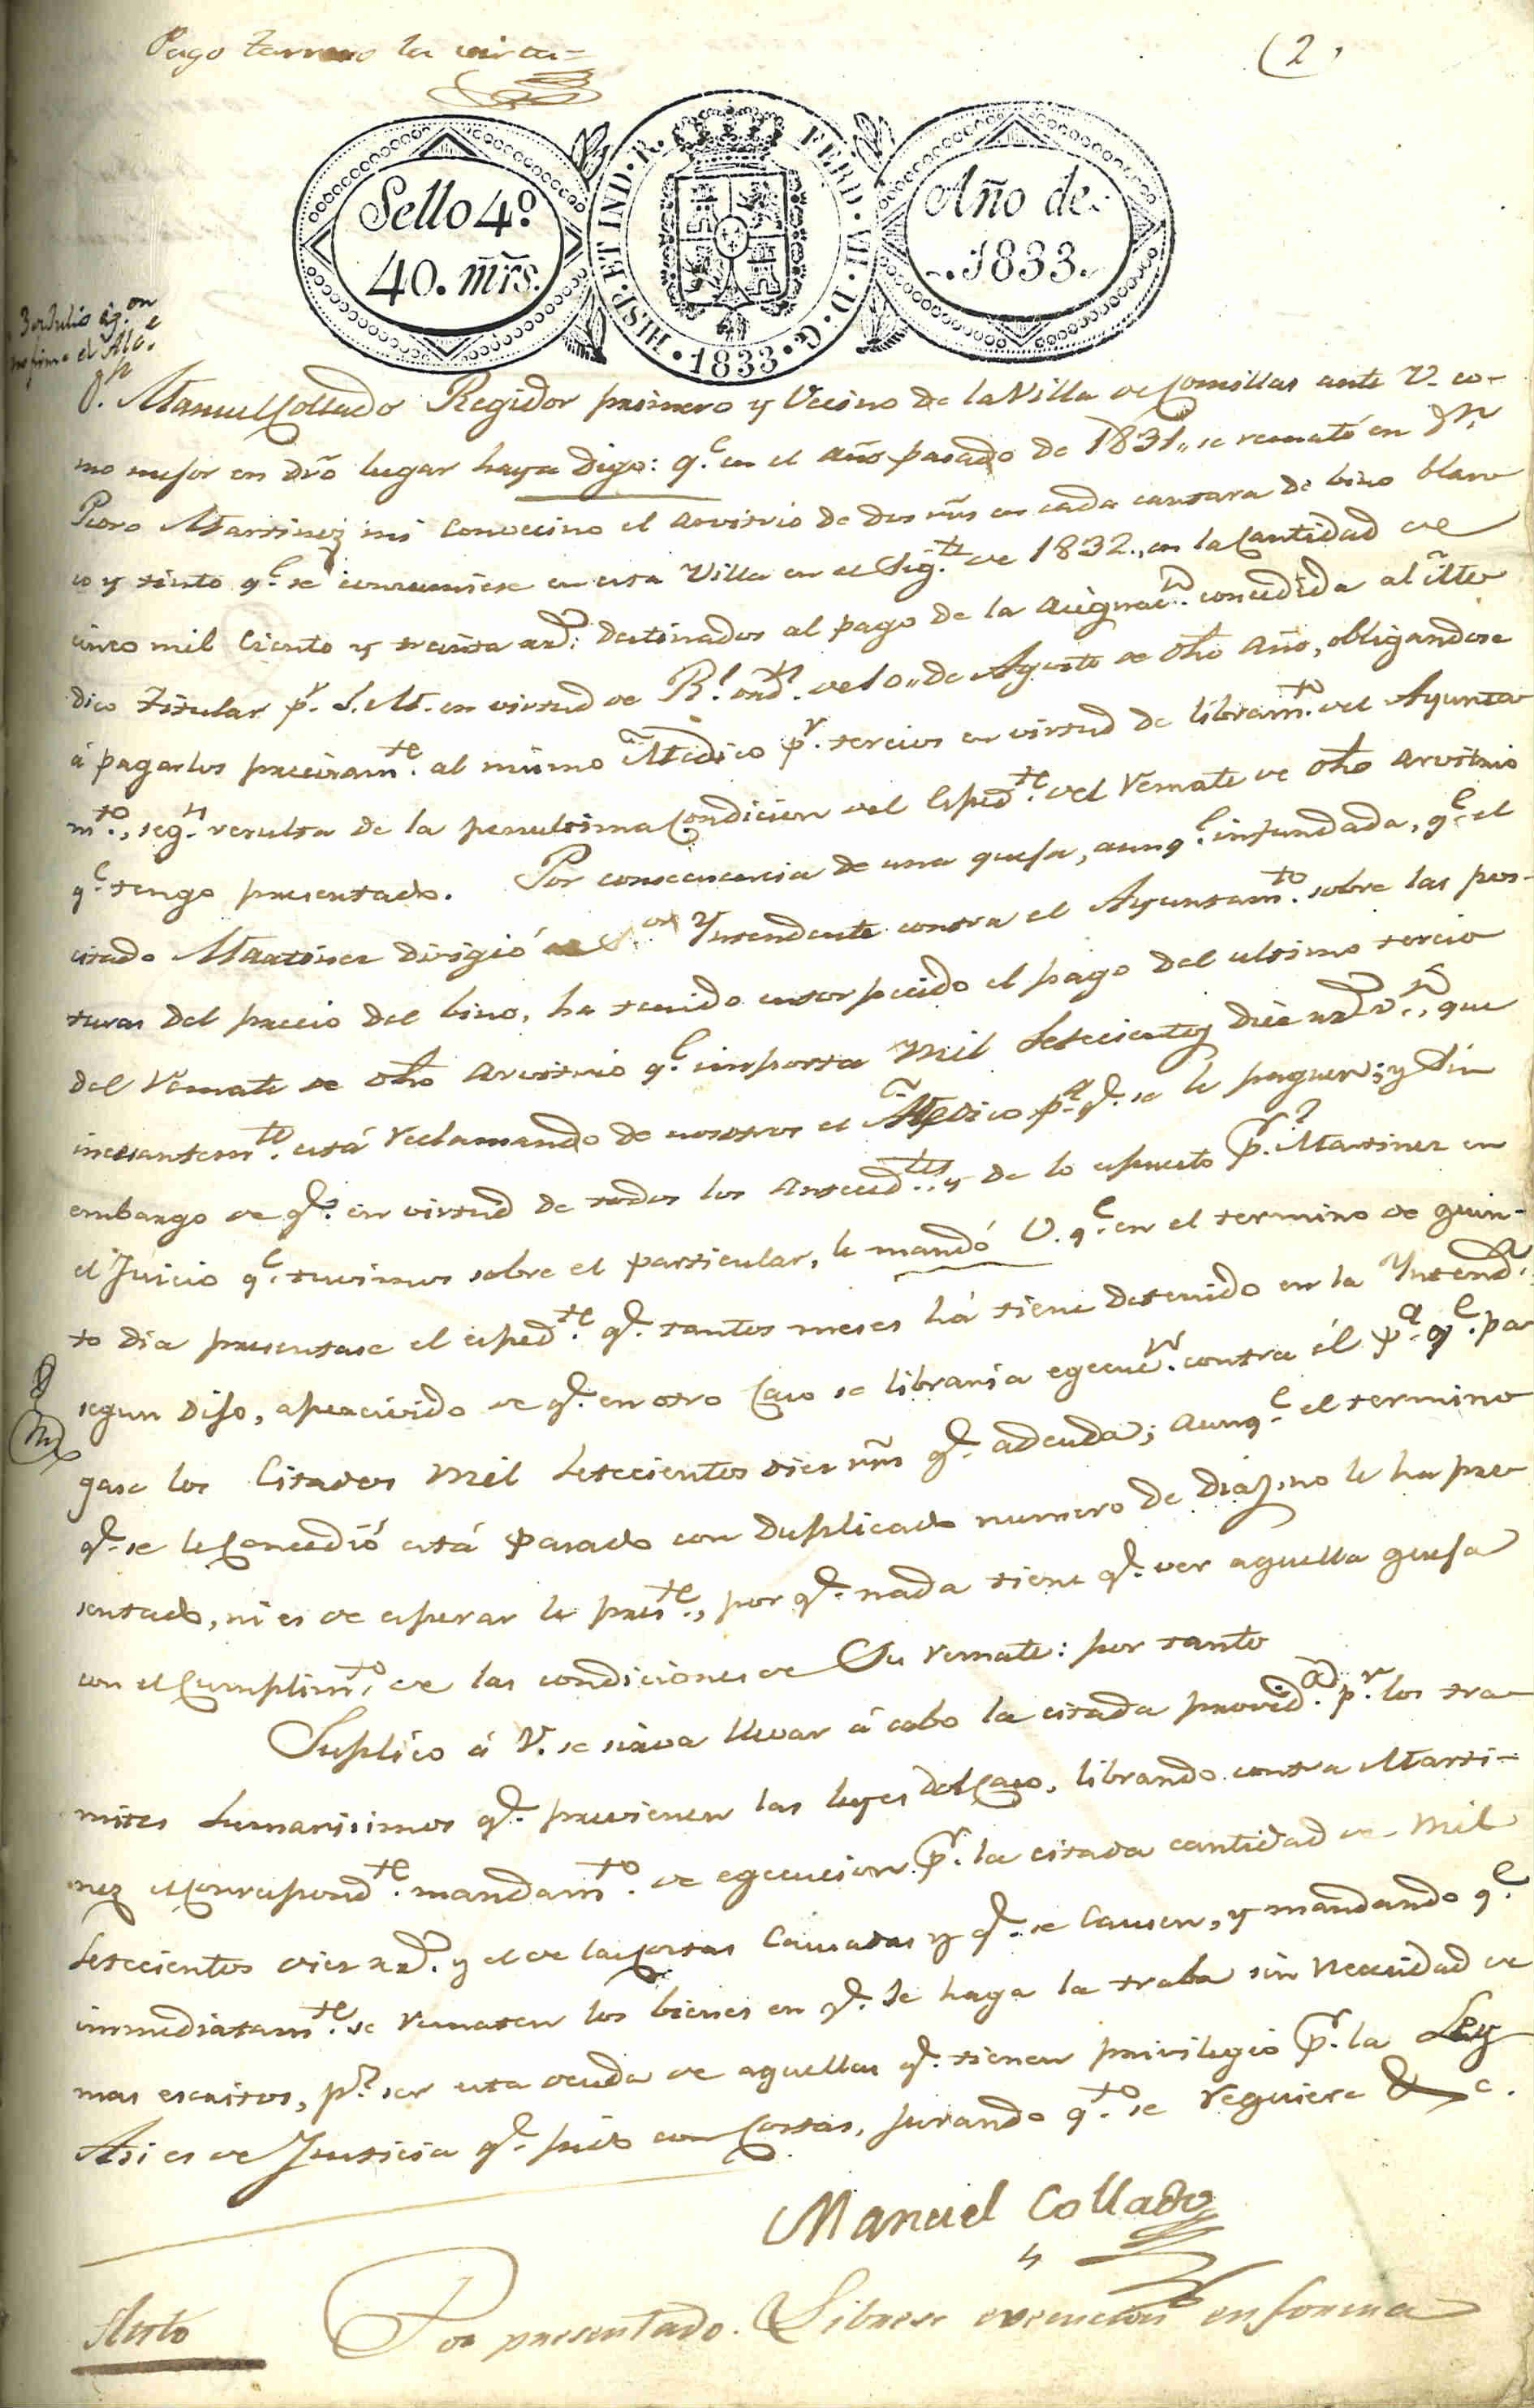 Pago Tarrano la
(2)
Sello 4º
40. mrs.
HISP. ET IND. R. FERD. VII. D. G. 1833.
Año de
1833.
3 de Julio
firma el Alc.e
D.n Manuel Collado Regidor primero y Vecino de la Villa de Comillas ante V. co-
mo mejor en dro lugar haya digo: q.e en el año pasado de 1831,, se remató en D.n
Pedro Martinez mi Convecino el arvitrio de dos mrs en cada cantara de bino blan
co y tinto q.e se consumiese en esta Villa en el Sig.te de 1832., en la Cantidad de
cinco mil Ciento y treinta rs.: destinados al pago de la asignac.n concedida al Me
dico titular p.r S. M. en virtud de R.l ord.n de 10,, de Agosto de dho año, obligandose
á pagarlos precisam.te al mismo Medico p.r tercios en virtud de libram.to del Ayunta
m.to, seg.n resulta de la penultima Condicion del Esped.te del Remate de dho arvitrio
q.e tengo presentado. Por consecuencia de una quefa, aunq.e infundada, q.e el
citado Martinez dirigió al S.or Yntendente contra el Ayuntam.to sobre las pos-
turas del precio del bino, ha tenido entorpecido el pago del ultimo tercio
del Remate de dho arvitrio q.e importa mil Setecientos diez rs. v.n, que
incesantem.te está reclamando de nosotros el Medico p.a q.e se le paguen; y Sin
embargo de q.e en virtud de todos los anteced.tes, y de lo espuesto p.r Martinez en
el Juicio q.e tuvimos sobre el particular, le mandó V. q.e en el termino de quin-
to dia presentase el esped.te q.e tantos meses há tiene detenido en la Yntend.a
segun dijo, apercivido de q.e en otro Caso se libraria egecuc.n contra él p.a q.e pa
gase los Citados mil Setecientos diez rrs q.e adeuda; aunq.e el termino
q.e se le Concedió está pasado con duplicado numero de diaz, no le ha pre
sentado, ni es de esperar le pres.te, por q.e nada tiene q.e ver aquella quefa
con el Cumplim.to de las condiciones de Su remate: por tanto
Suplico á V. se sirva llevar á cabo la citada provid.a p.r los tra-
mites Sumarisimos q.e previenen las leyes del Caso, librando contra Marti-
nez el Correspond.te mandam.to de egecucion p.r la citada cantidad de mil
Setecientos diez rs. y el de las Costas Causadas y q.e se Causen, y mandando q.e
inmediatam.te se rematen los bienes en q.e se haga la traba sin necesidad de
mas escritos, p.r ser esta deuda de aquellas q.e tienen privilegio p.r la Ley
Asi es de Justicia q.e pido con Costas, jurando q.to se requiere &c.
Manuel Collado
Auto Por presentado. Librese execucion en forma